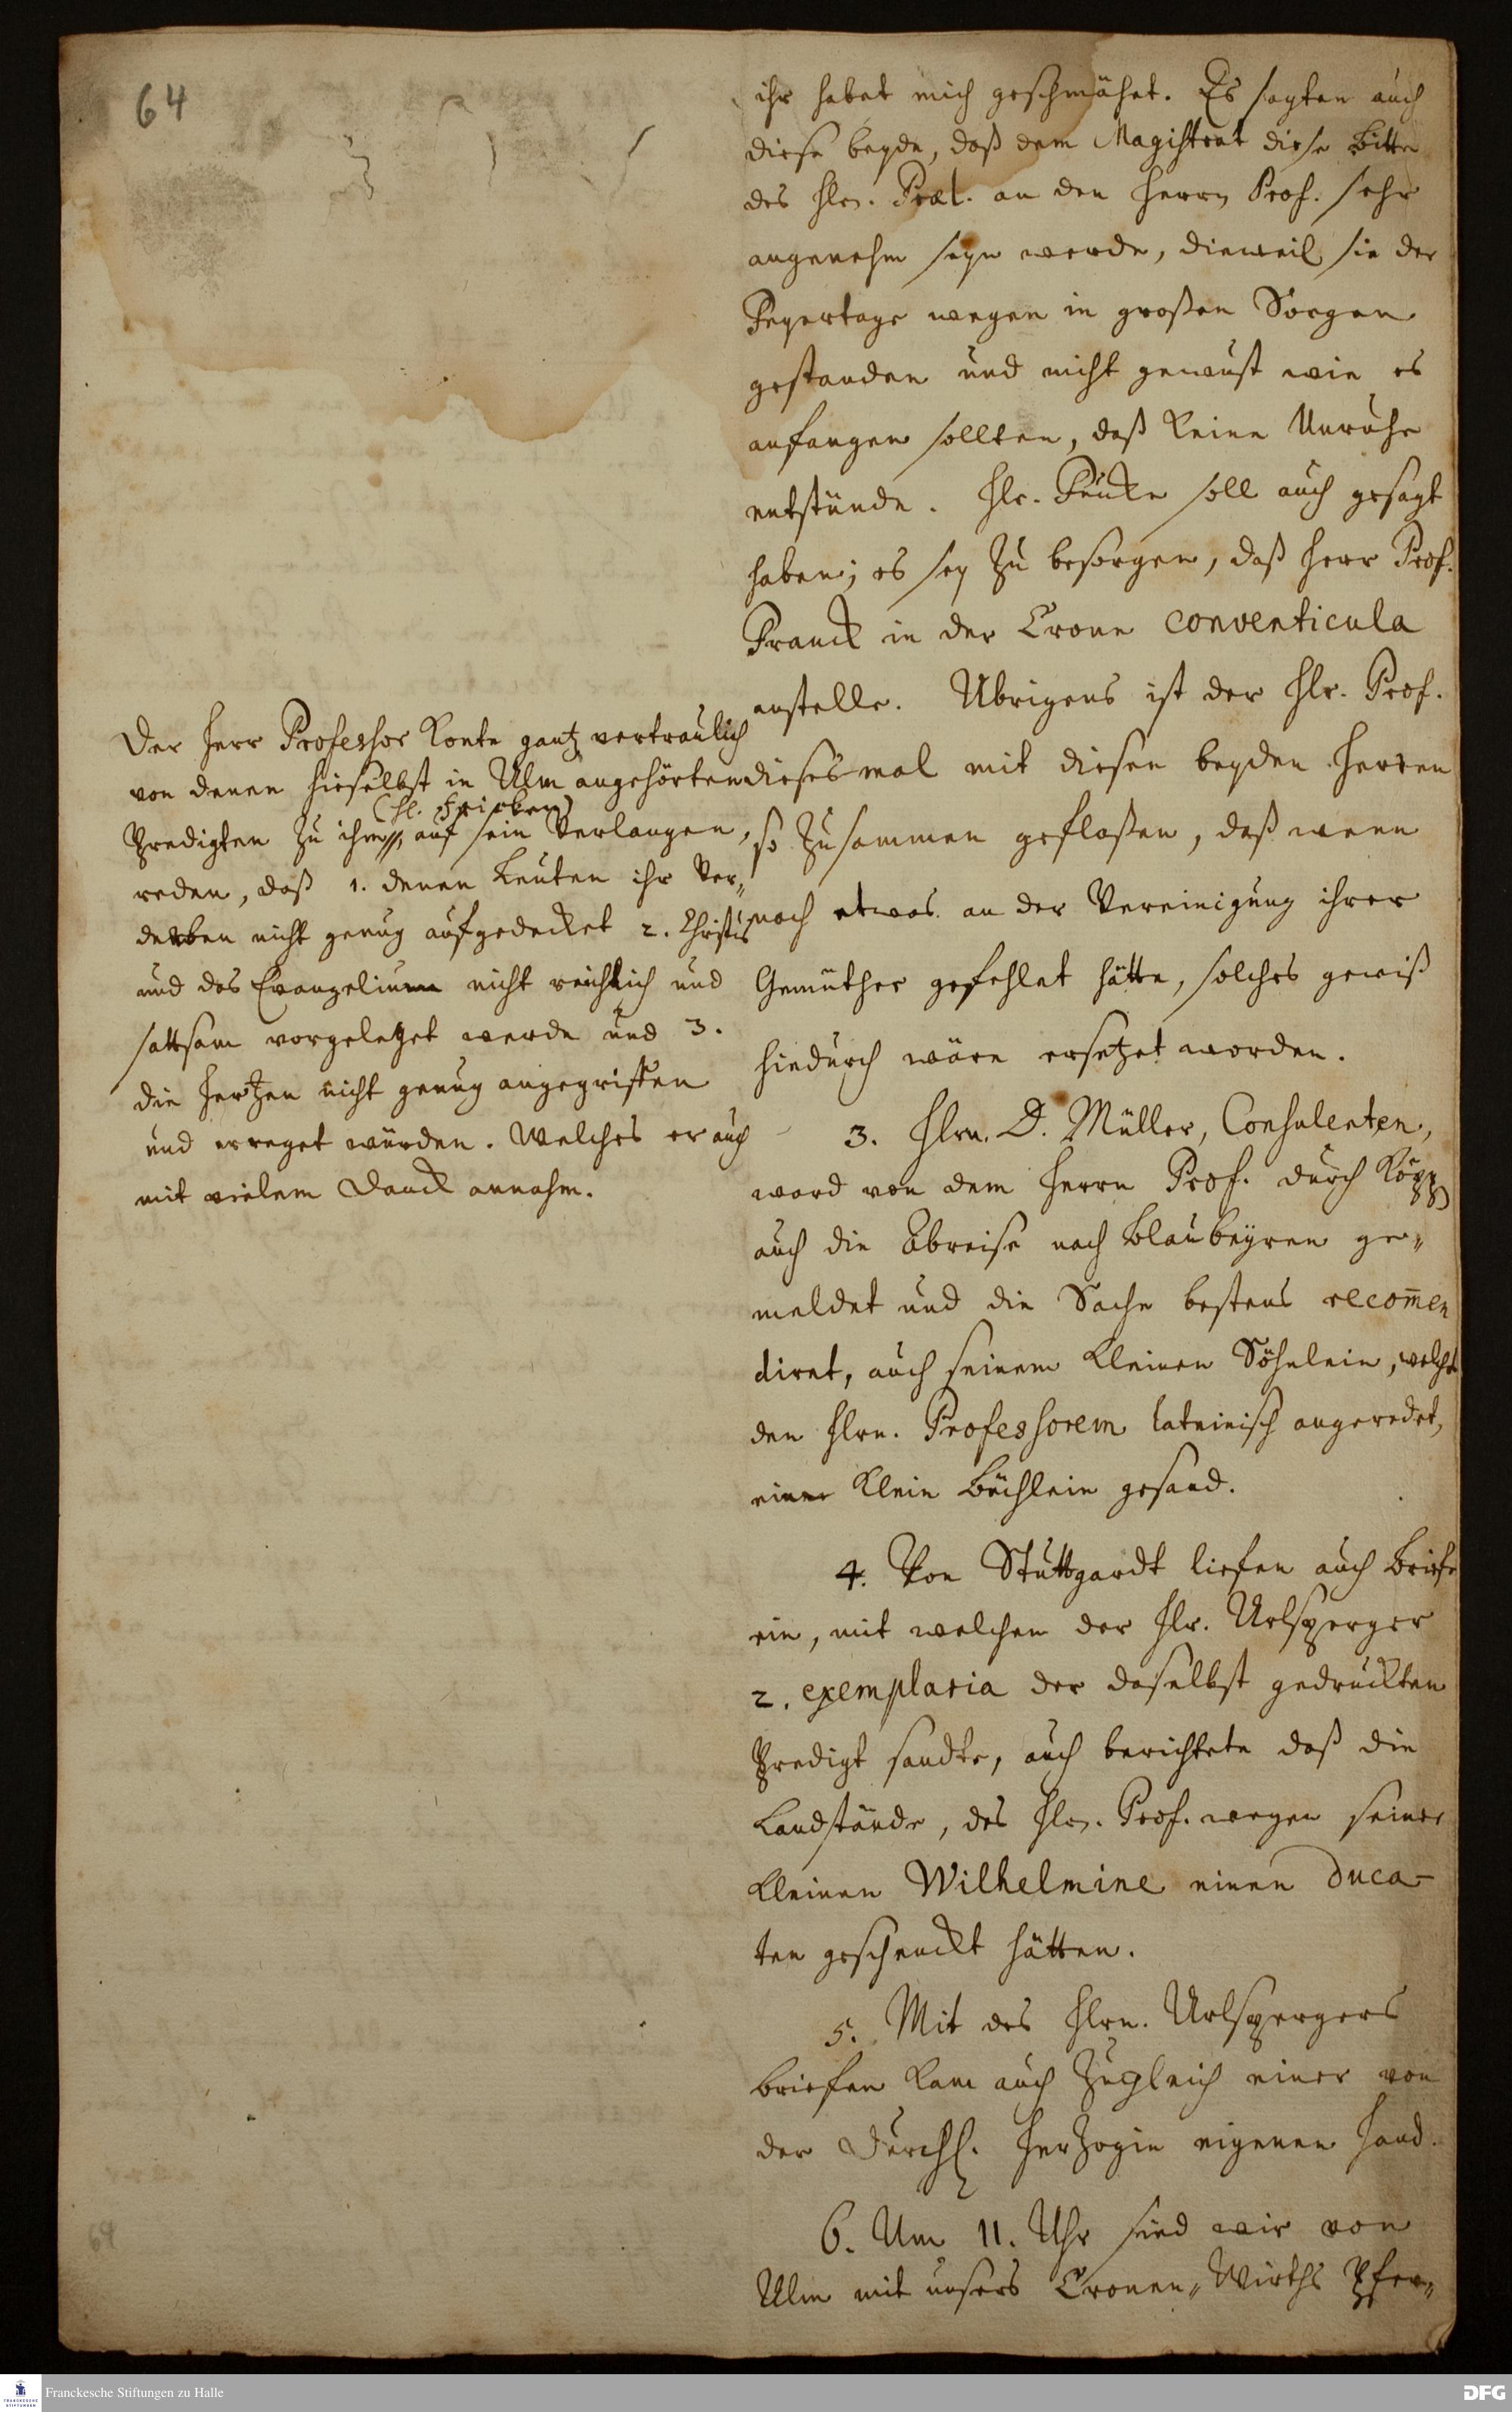 64
ihr habet mich geschmähet. Es sagten auch
diese beyde, daß dem Magistrat diese Bitte
des Hrn. Præl. an den Herrn Prof. sehr
angenehm seyn werde, dieweil sie der
Feyertage wegen in großen Sorgen
gestanden und nicht gewust wie es
anfangen sollten, daß keine Unruhe
entstünde. Hr. soll auch gesagt
haben; es sey zu besorgen, daß Herr Prof.
Franck in der Crone conventicula
anstelle. Ubrigens ist der Hr. Prof.
diesesmal mit diesen beyden Herren
so zusammen gefloßen, daß wenn
noch etwas an der Vereinigung ihrer
Gemüther gefehlet hätte, solches gewiß
hiedurch wäre ersetzet worden.
Der Herr Professor konte gantz vertraulich
von denen hieselbst in Ulm angehörten
(H. Fricken)
Predigten zu ihm, auf sein Verlangen,
reden, daß 1. denen Leuten ihr Ver„
derben nicht genug aufgedecket 2. Christus
und das Evangelium nicht reichlich und
sattsam vorgeleget werde und 3.
die Hertzen nicht genug angegriffen
und erreget würden. Welches er auch
mit vielem Danck annahm.
3. Hrn. D. Müller, Consulenten,
ward von dem Herrn Prof. durch Köpp
auch die Abreise nach Blaubeyren ge„
meldet und die Sache bestens recom̄en
diret, auch seinem kleinen Söhnlein, welches
den Hrn. Professorem lateinisch angeredet,
ein klein Büchlein gesand.
4. Von Stuttgardt liefen auch Briefe
ein, mit welchen der Hr. Urlsperger
2. exemplaria der daselbst gedruckten
Predigt sandte, auch berichtete daß die
Landstände, des Hrn. Prof. wegen seiner
kleinen Wilhelmine einen Duca-
ten geschenckt hätten.
5. Mit des Hrn. Urlspergers
Briefen kam auch zugleich einer von
der Durchl. Herzogin eigenen Hand.
6. Um 11. Uhr sind wir von
Ulm mit unsers Cronen„Wirths Pfer„
64
Franckesche Stiftungen zu Halle
DFG